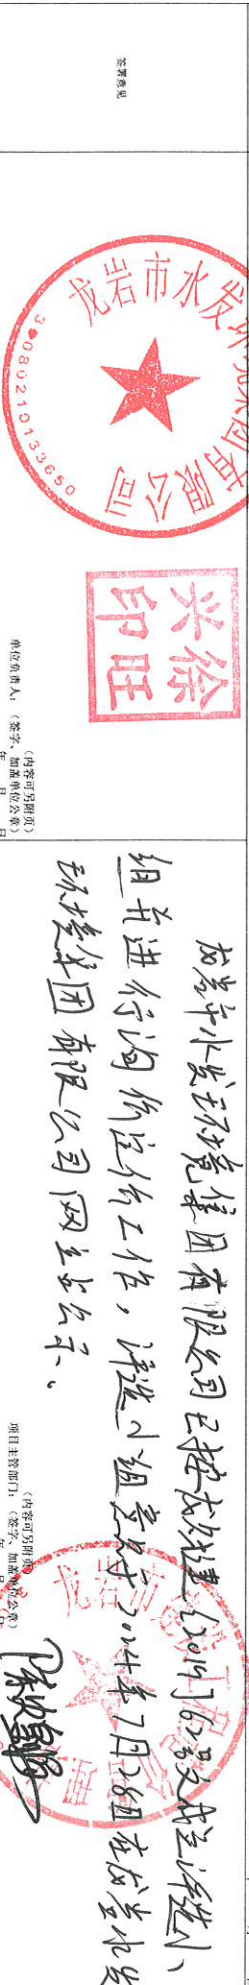 签署意见
龙岩市水发环境集团有限公司
徐兴旺印
(内容可另附页)
单位负责人:(签字、加盖单位公章)
年 月 日
龙岩市水发环境集团有限公司已按龙发建〔2019〕62号文成立评选小
组并进行询价定价工作,评选小组意见于2024年7月26日在龙岩水发
环境集团有限公司网站公示、
(内容可另附页)
项目主管部门:(签字、加盖单位公章)
年 月 日